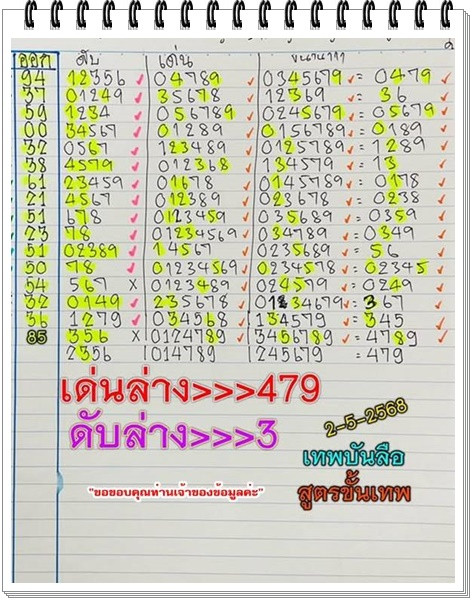 ออก ดับ เด่น
94 12356 ✓ 04789 ✓ 0345679 ✓ = 0479 ✓
37 01249 ✓ 35678 ✓ 12369 ✓ = 36 ✓
59 1234 ✓ 056789 ✓ 0245679 ✓ = 05679 ✓
00 34567 ✓ 01289 ✓ 0156789 ✓ = 0189 ✓
32 0567 ✓ 123489 ✓ 0125789 ✓ = 1289 ✓
38 4579 ✓ 012368 ✓ 134579 ✓ = 13 ✓
61 23459 ✓ 01678 ✓ 0145789 ✓ = 0178 ✓
21 4567 ✓ 012389 ✓ 023678 ✓ = 0238 ✓
51 678 ✓ 0123459 ✓ 035689 ✓ = 0359 ✓
23 78 ✓ 01234569 ✓ 034789 ✓ = 0349 ✓
51 02389 ✓ 14567 ✓ 0235689 ✓ = 56 ✓
50 78 ✓ 01234569 ✓ 0234578 ✓ = 02345 ✓
54 567 × 0123489 ✓ 024579 ✓ = 0249 ✓
32 0149 ✓ 235678 ✓ 01234679 ✓ = 367 ✓
36 1279 ✓ 034568 ✓ 134579 ✓ = 345 ✓
85 356 × 0124789 ✓ 3456789 ✓ = 4789 ✓
2356 014789 245679 = 479
เด่นล่าง>>>479
ดับล่าง>>>3
2-5-2568
เทพบันลือ
สูตรขั้นเทพ
"ขอขอบคุณท่านเจ้าของข้อมูลค่ะ"